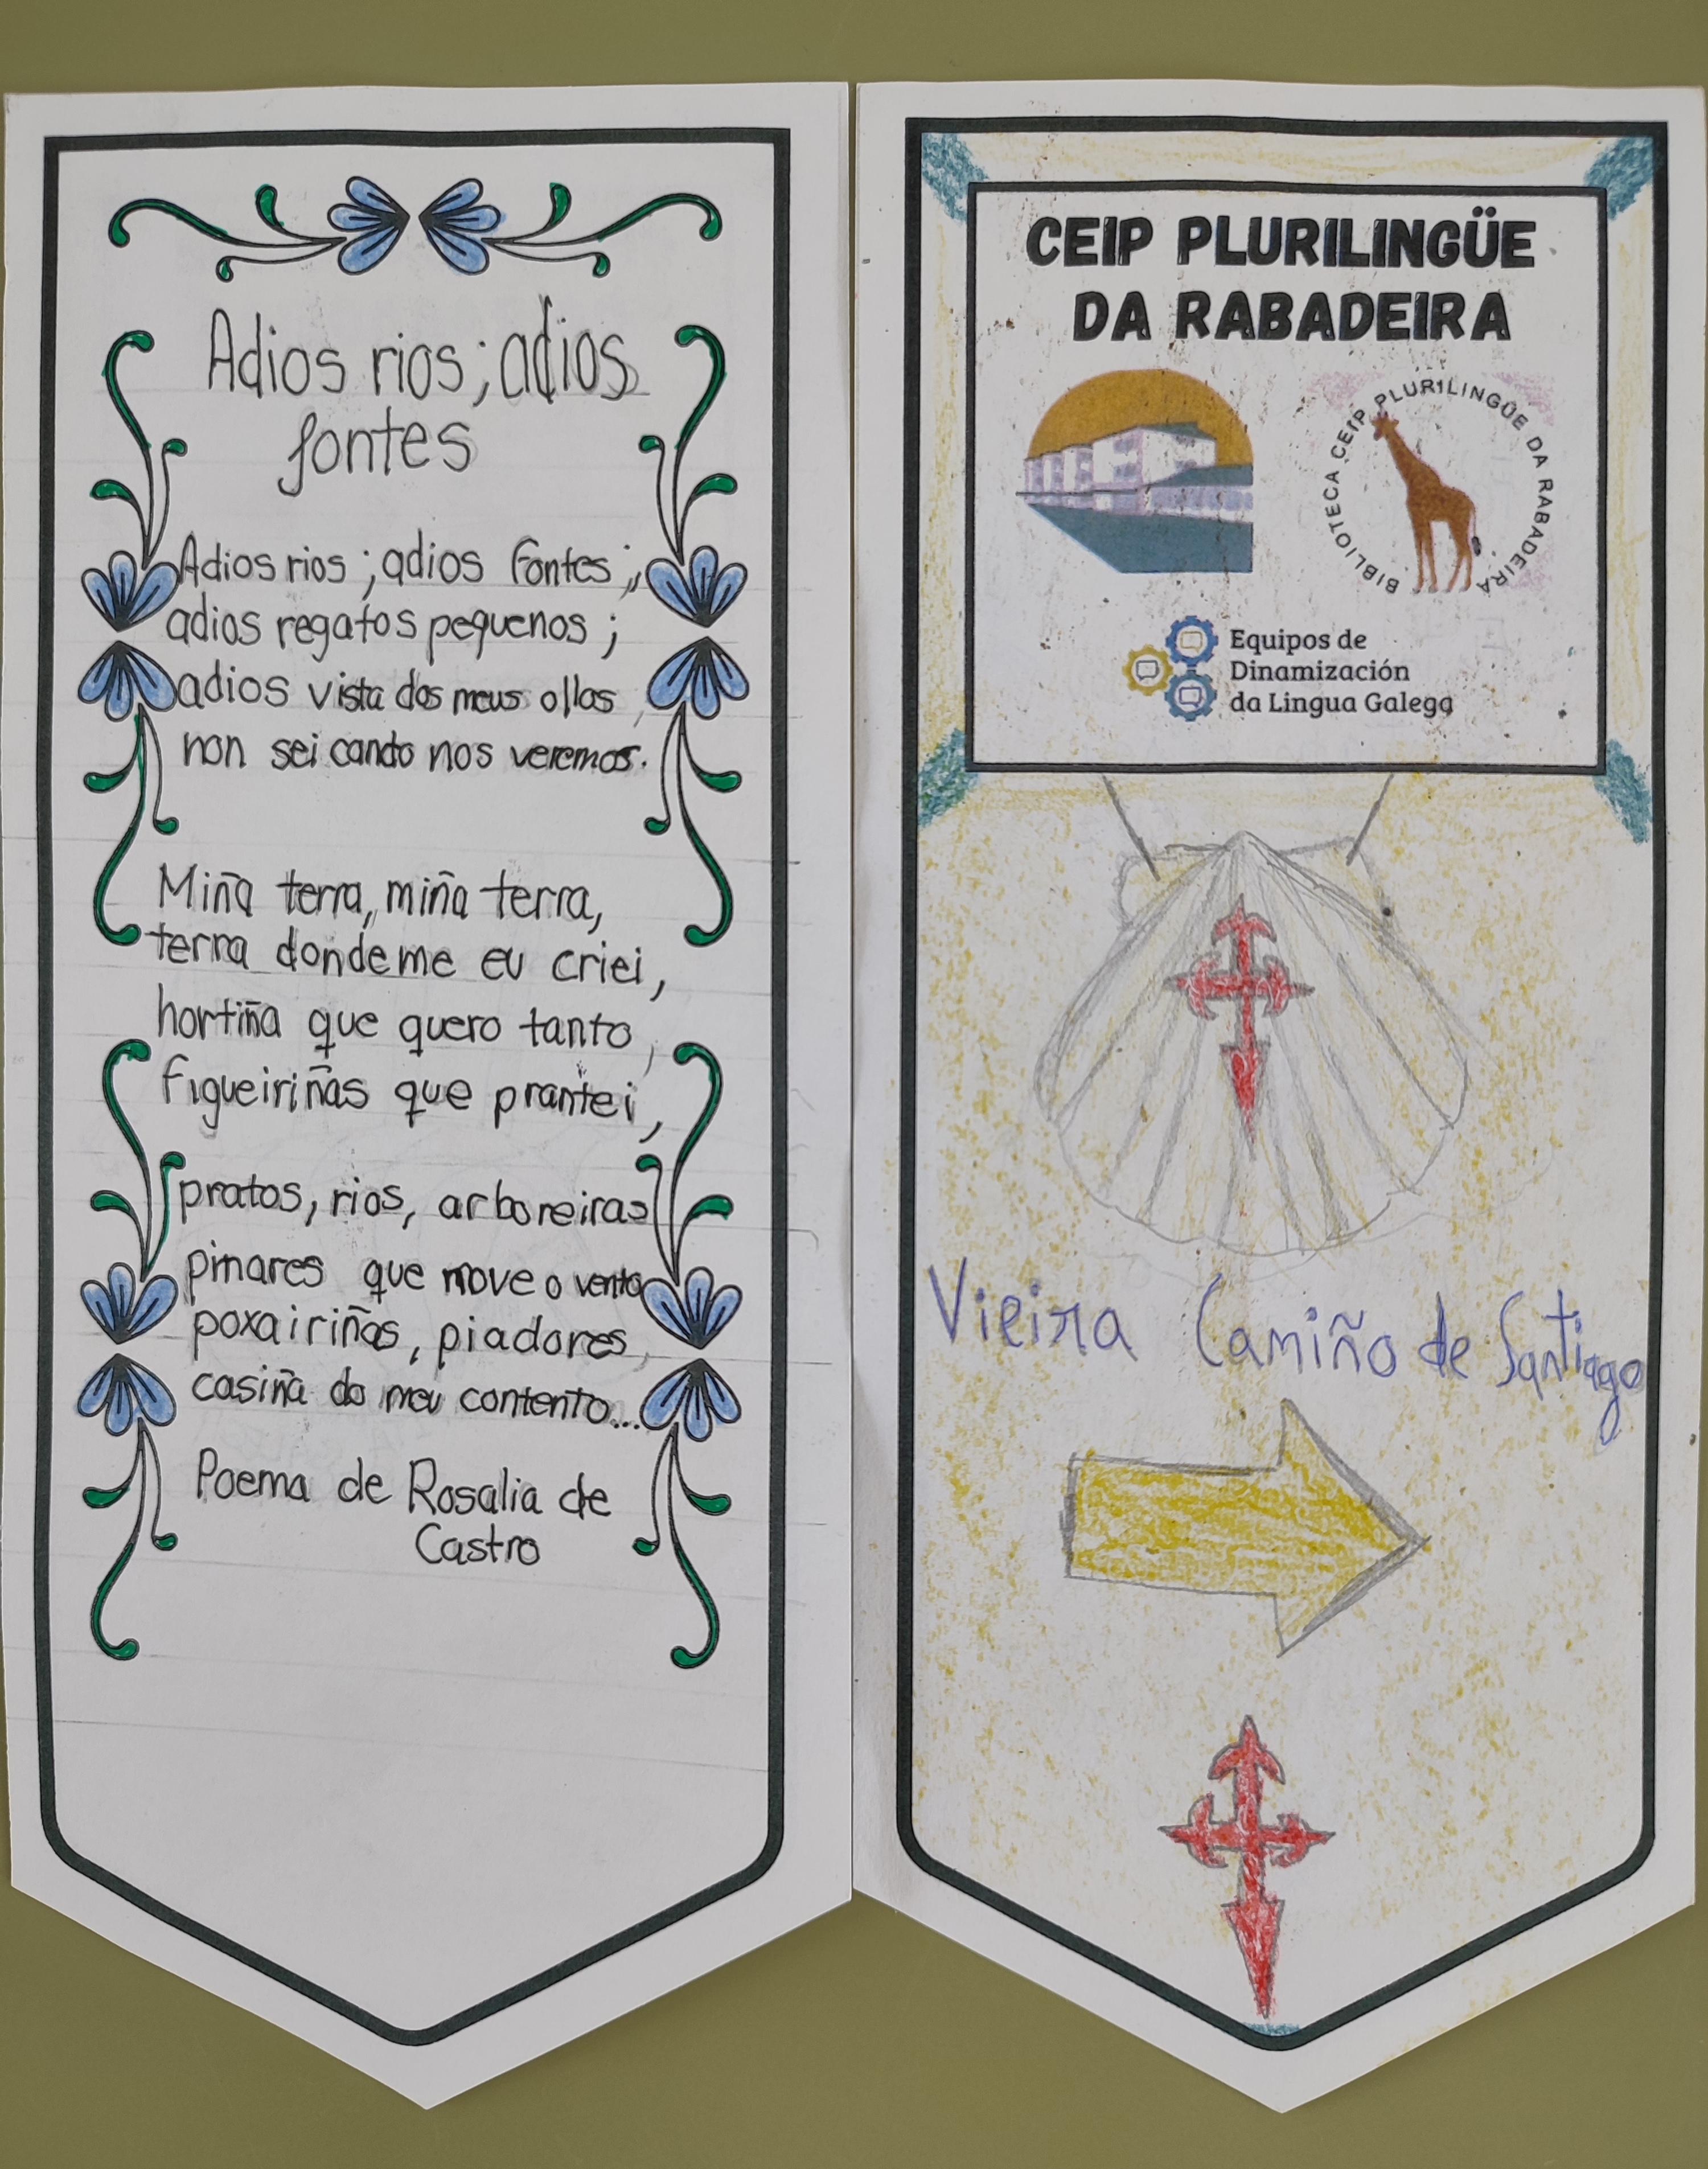 Adios rios; adios
fontes
Adios rios; adios fontes;
adios regatos pequenos;
adios vista dos meus ollos,
non sei cando nos veremos.
Miña terra, miña terra,
terra donde me eu criei,
hortiña que quero tanto,
figueiriñas que prantei,
pratos, rios, arboreiras
pinares que move o vento
poxairiños, piadores,
casiña do meu contento...
Poema de Rosalia de
Castro
CEIP PLURILINGÜE
DA RABADEIRA
BIBLIOTECA CEIP PLURILINGÜE DA RABADEIRA
Equipos de
Dinamización
da Lingua Galega
Vieira Camiño de Santiago